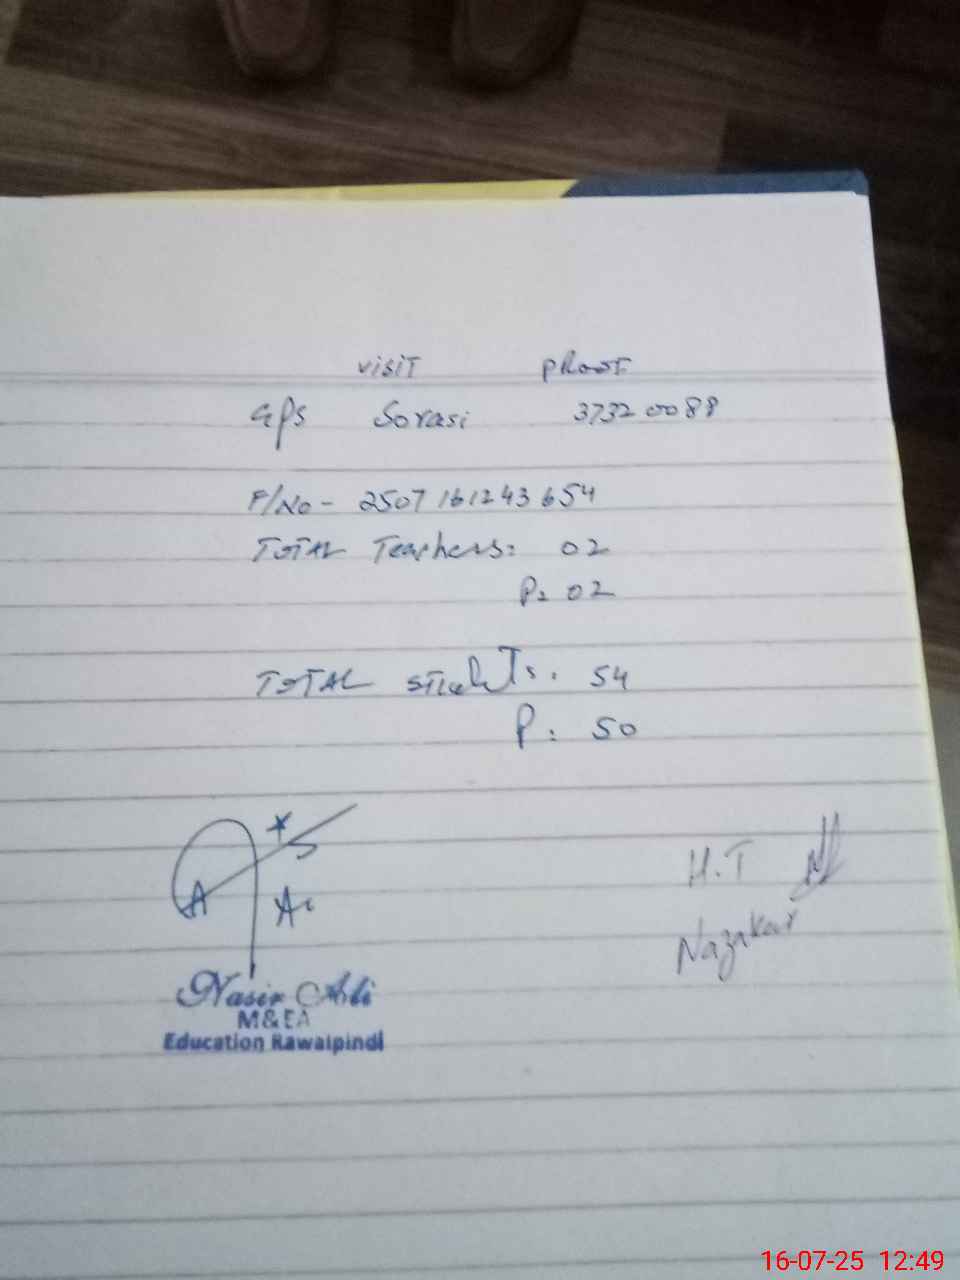 visit proof
GPS Sorasi 37320088
F/No - 2507161243654
TOTAL Teachers: 02
P: 02
TOTAL students: 54
P: 50
H.T
Nazakar
Nasir Ali
M&EA
Education Rawalpindi
16-07-25 12:49